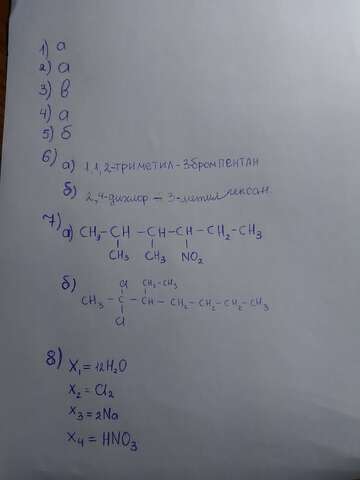 1) а
2) а
3) в
4) а
5) б
6) а) 1,1,2-триметил-3-бромпентан
б) 2,4-дихлор – 3-метил гексан.
7) а) CH3-CH-CH-CH-CH2-CH3
CH3 CH3 NO2
б) Cl CH2-CH3
CH3-C-CH-CH2-CH2-CH2-CH3
Cl
8) X1=12H2O
X2=Cl2
X3=2Na
X4=HNO3